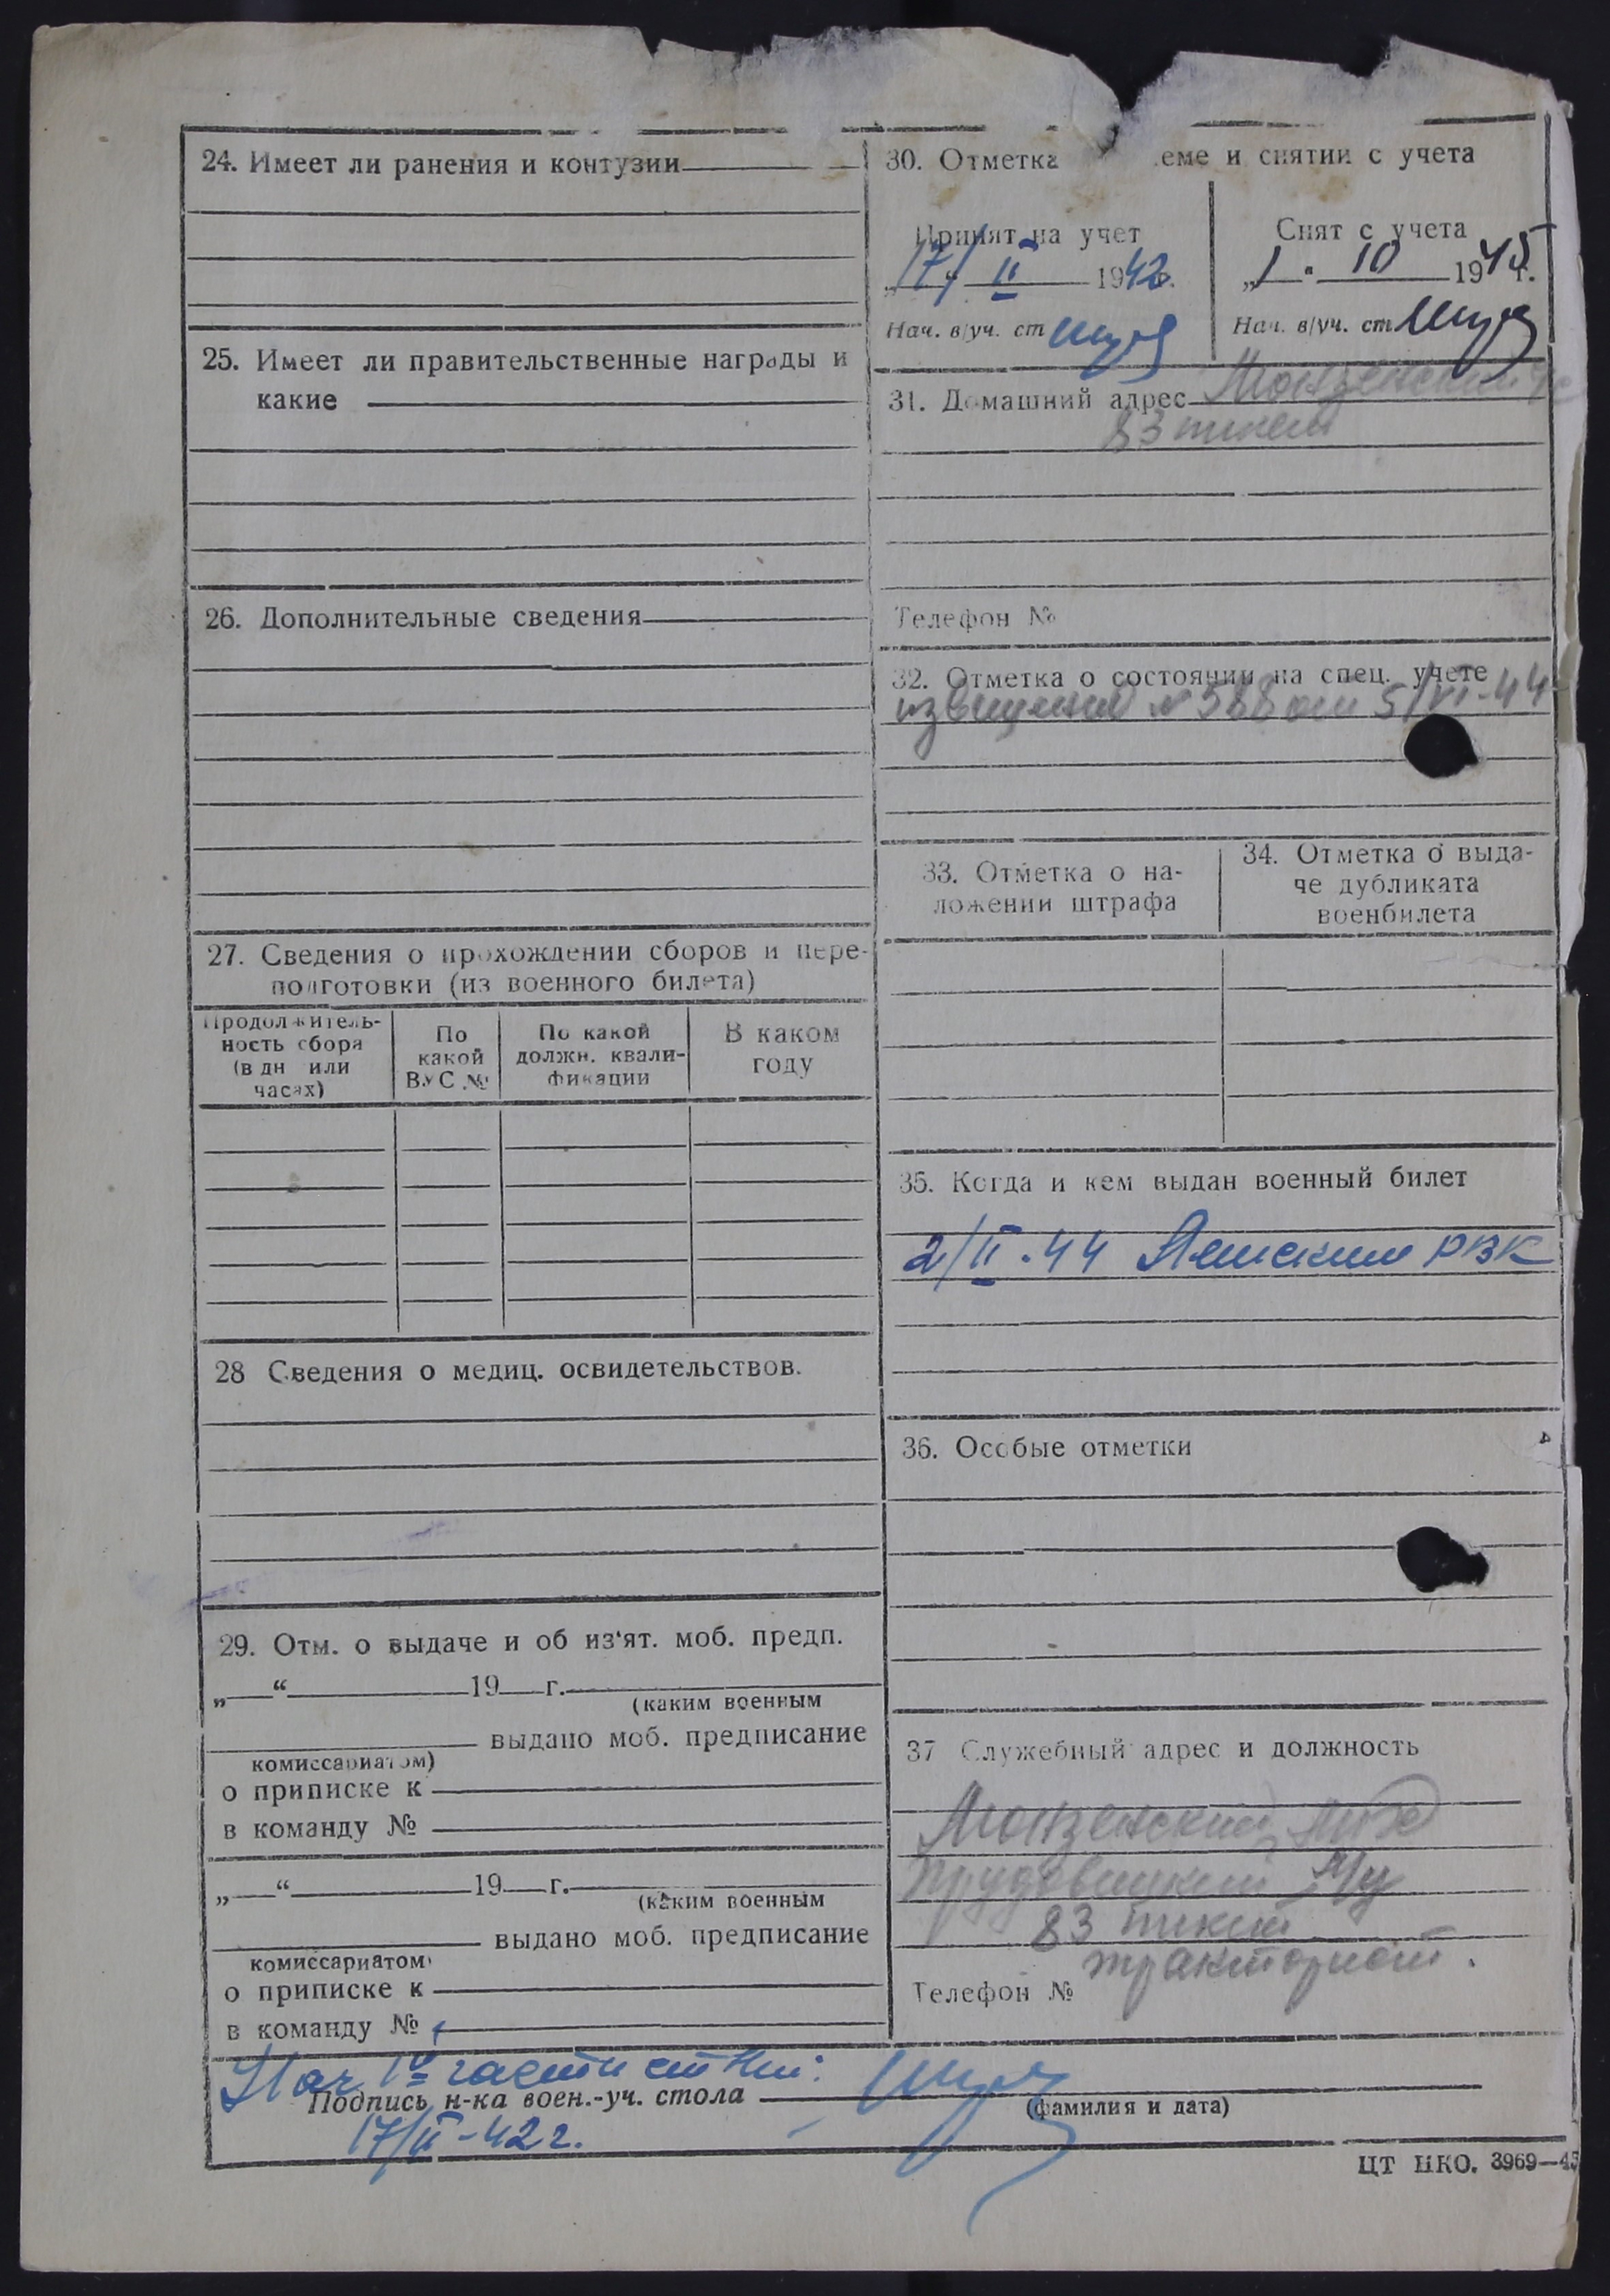 24. Имеет ли ранения и контузии
25. Имеет ли правительственные награды и
какие
26. Дополнительные сведения
27. Сведения о прохождении сборов и пере-
подготовки (из военного билета)
Продолжитель-
ность сбора
(в дн или
часах)
По
какой
ВУС №
По какой
должн. квали-
фикации
В каком
году
28 Сведения о медиц. освидетельствов.
29. Отм. о выдаче и об из'ят. моб. предп.
„ “ 19 г.
(каким военным
выдано моб. предписание
комиссариатом)
о приписке к
в команду №
„ “ 19 г.
(каким военным
выдано моб. предписание
комиссариатом)
о приписке к
в команду №
30. Отметка еме и снятии с учета
Принят на учет
„17“ II 1942г.
Нач. в/уч. ст
Снят с учета
„1 " 10 1945г.
Нач. в/уч. ст
31. Домашний адрес Монзенский
83 пикет
Телефон №
32. Отметка о состоянии на спец. учете
извещение № 588 от 5/VI-44
33. Отметка о на-
ложении штрафа
34. Отметка о выда-
че дубликата
военбилета
35. Когда и кем выдан военный билет
2/II-44 РВК
36. Особые отметки
37 Служебный адрес и должность
Монзенский
83 пикет
тракторист.
Телефон №
Нач 1й части
Подпись н-ка воен.-уч. стола
(фамилия и дата)
17/II-42 г.
ЦТ НКО. 3969—45